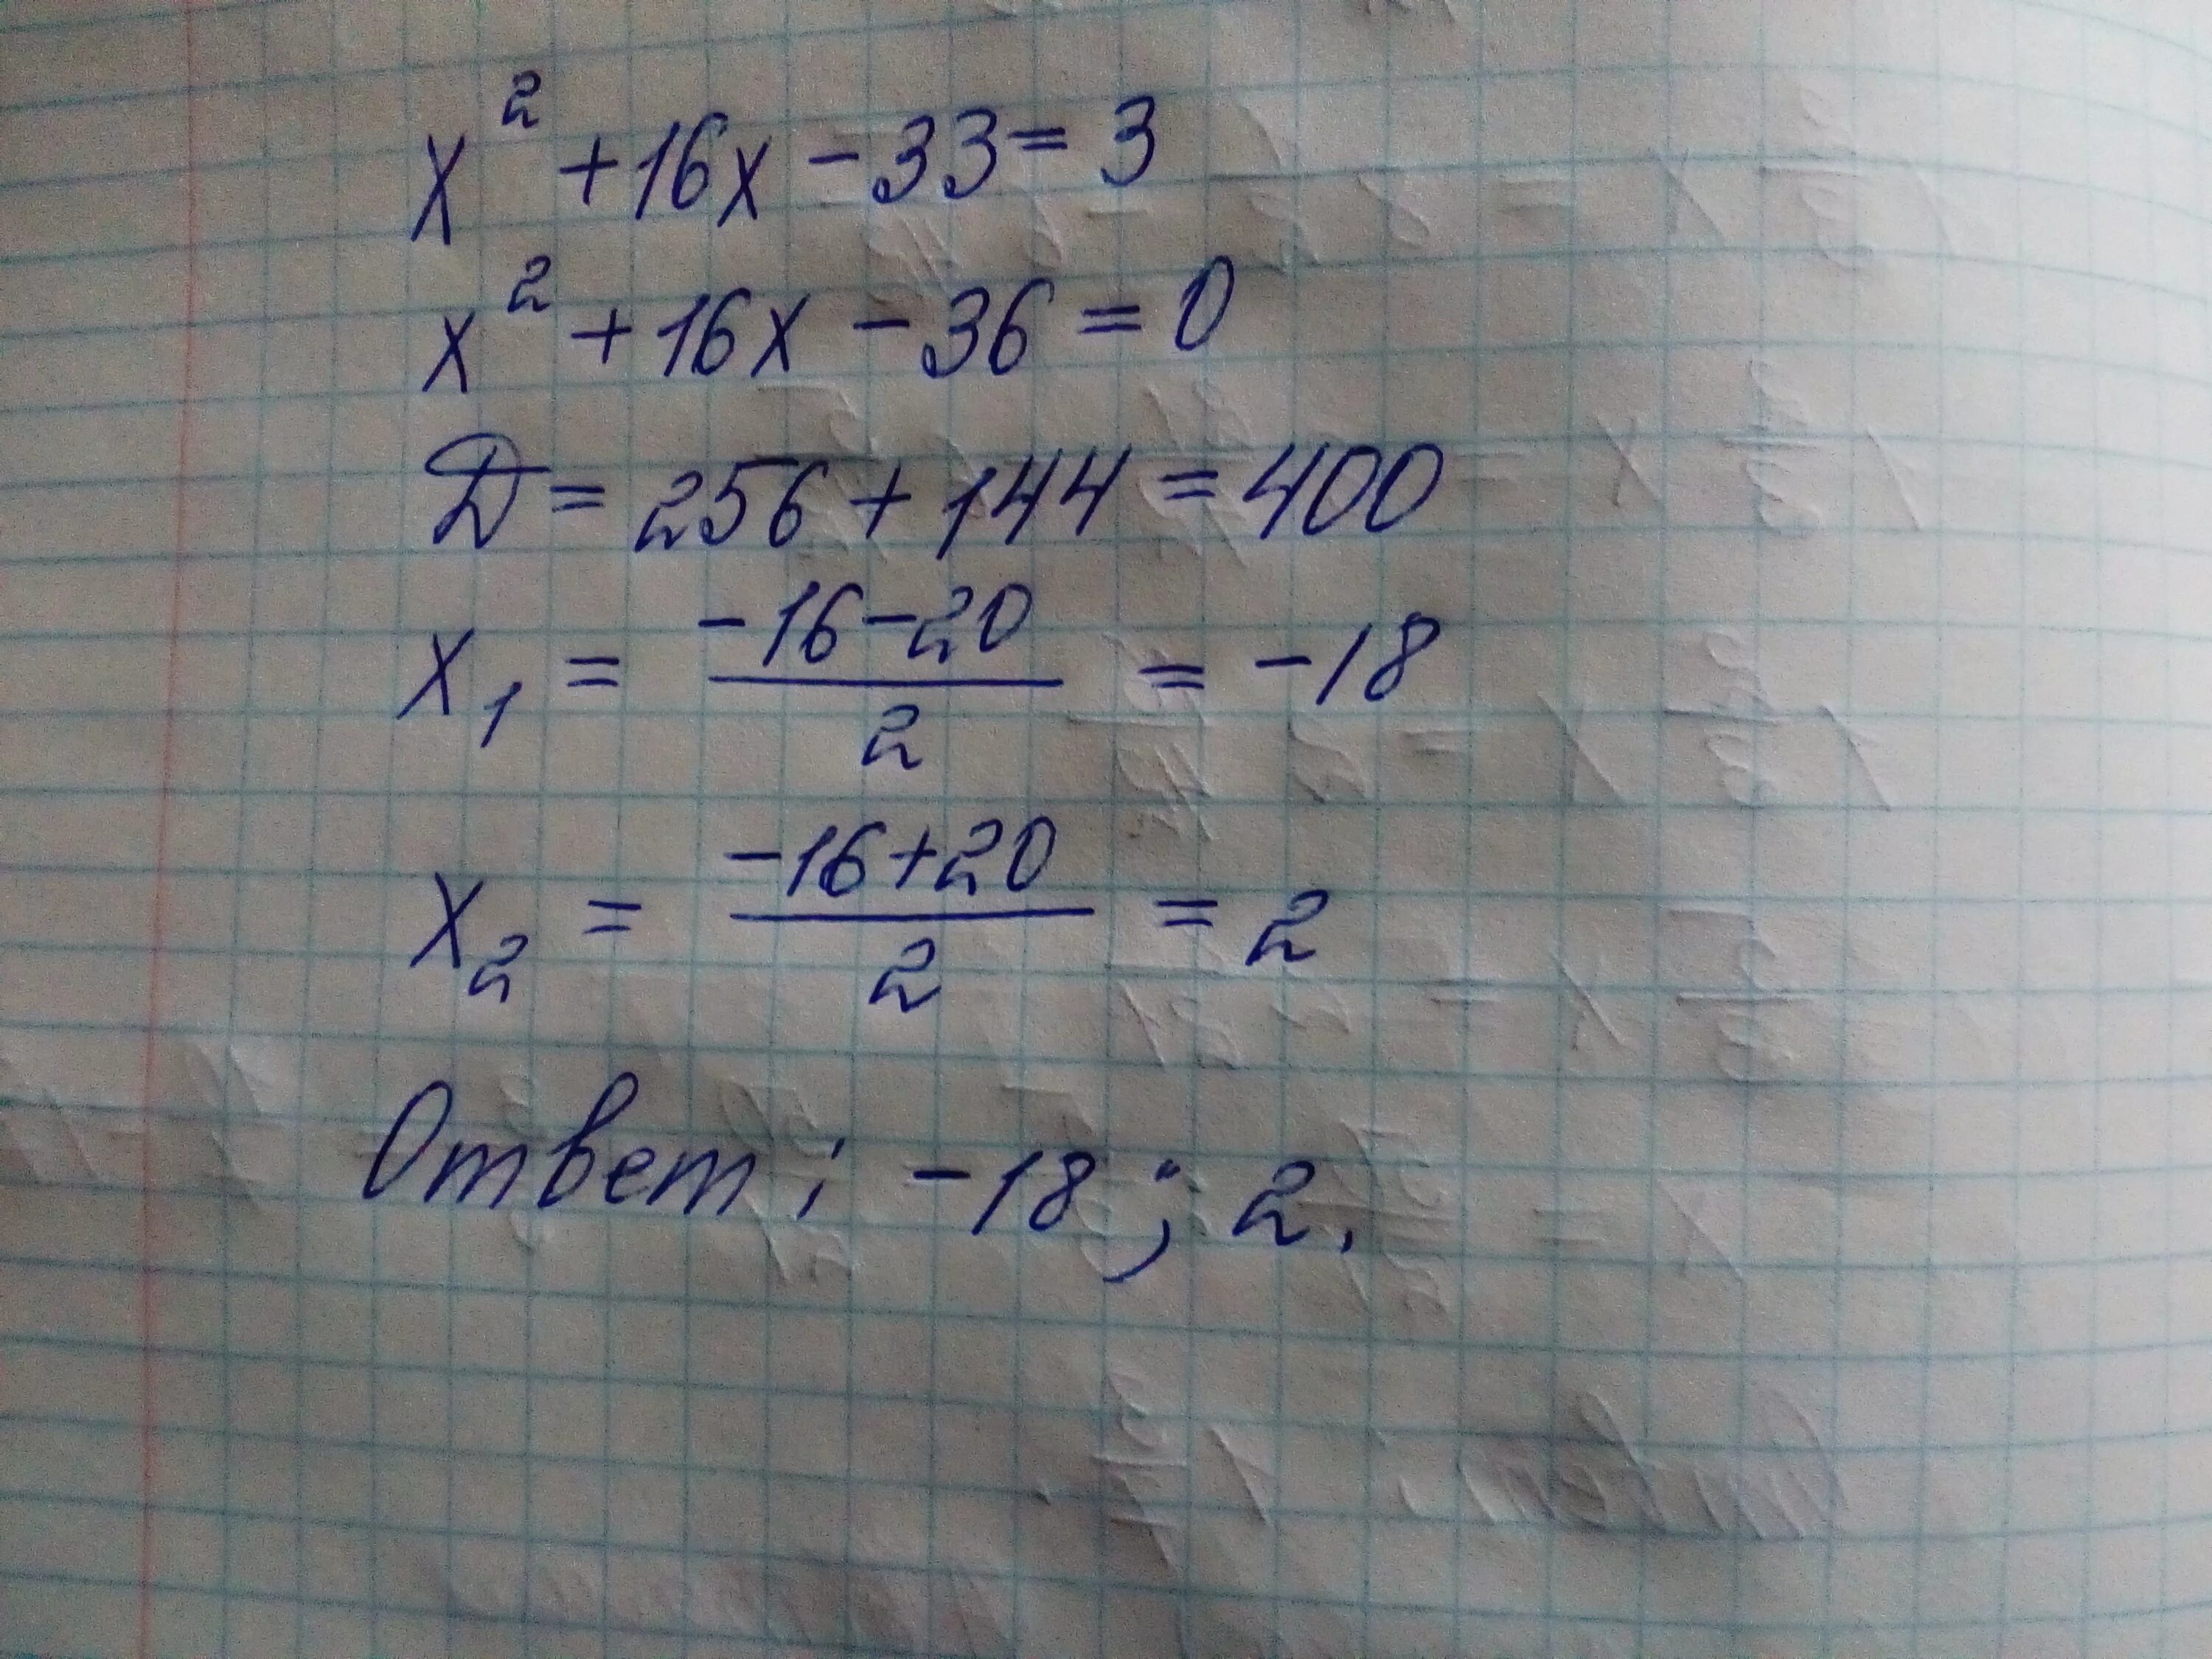 x² + 16x - 33 = 3
x² + 16x - 36 = 0
D = 256 + 144 = 400
x₁ = (-16-20)/2 = -18
x₂ = (-16+20)/2 = 2
Ответ: -18; 2.